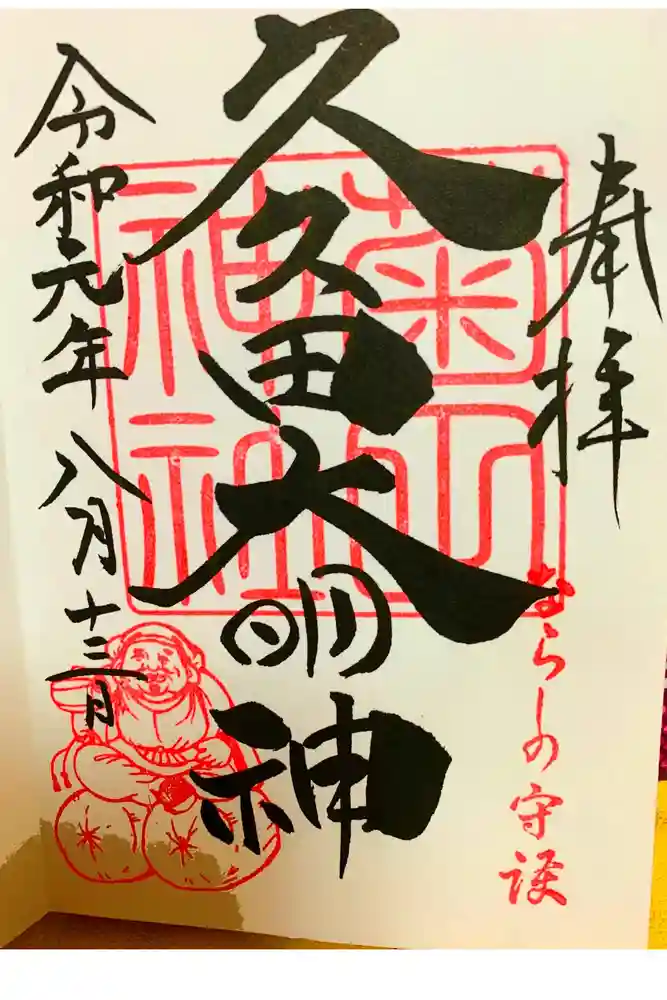 奉拝
ならしの守護
久久田大明神
菊田
神社
令和元年 八月十三日